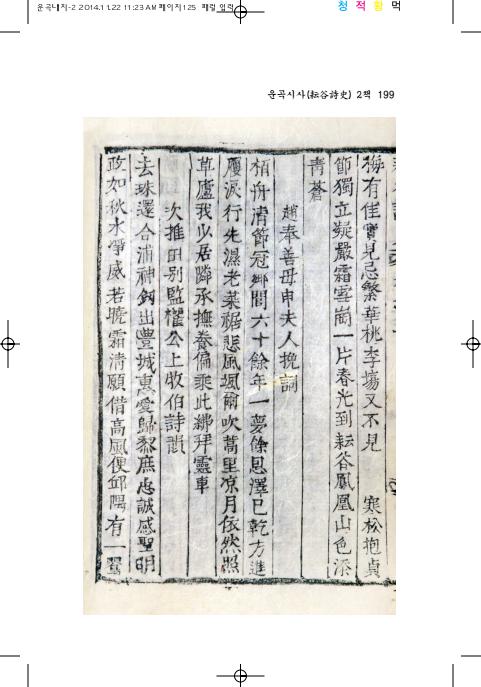 운곡내지-2 2014.11.22 11:23 AM 페이지125 패컬 입력
청 적 황 먹
운곡시사(耘谷詩史) 2책 199
梅有佳實見忌繁華桃李場又不見 寒松抱貞
節獨立凝嚴霜雪崗一片春光到耘谷鳳凰山色添
靑蒼
趙奉善母申夫人挽詞
栢舟淸節冠鄕閭六十餘年一夢餘恩澤已乾方進
屨淚行先濕老萊裾悲風颯爾吹蒿里凉月依然照
草廬我少居隣承撫養偏乘此紼拜靈車
次推田別監權公上牧伯詩韻
去珠還合浦神釰出豊城惠愛歸黎庶忠誠感聖明
政如秋水淨威若曉霜淸願借高風便邱隅有一鸎